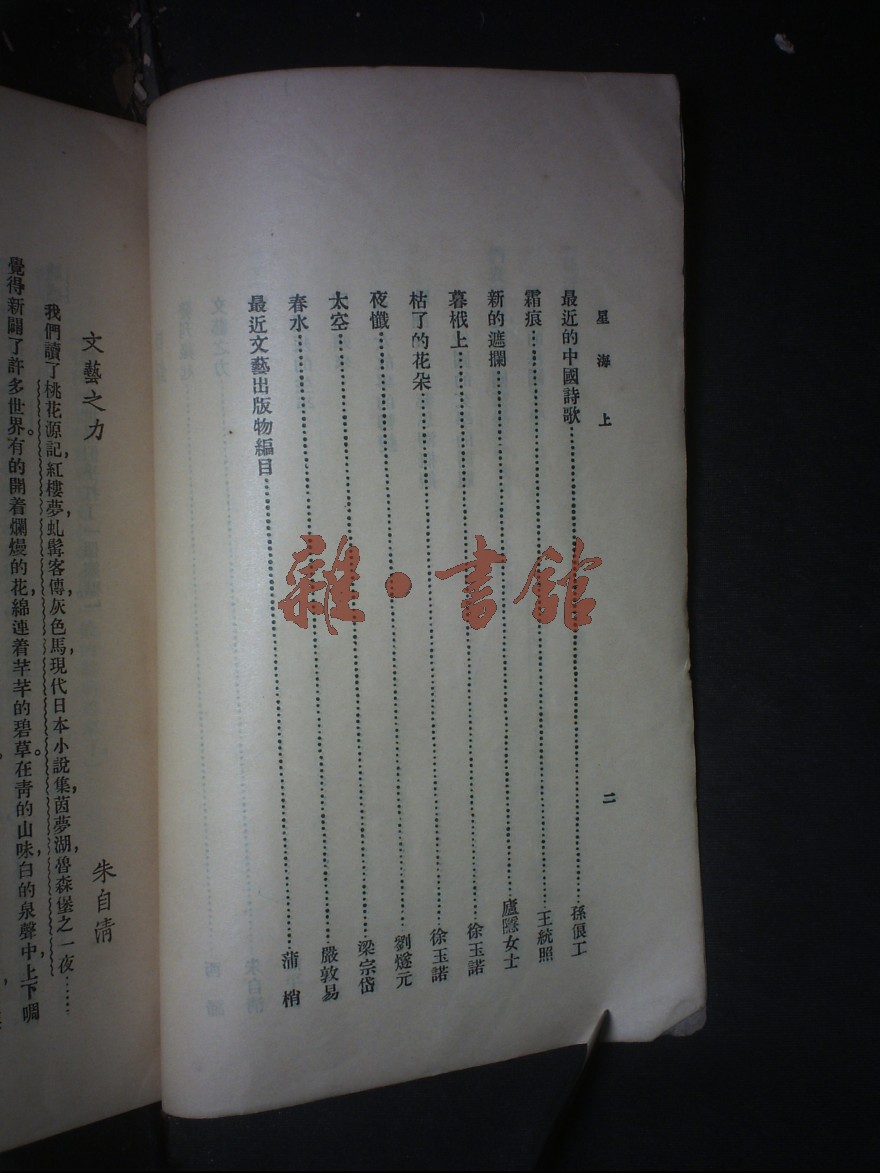 星海上 二
最近的中國詩歌……孫俍工
霜痕……王統照
新的遮攔……廬隱女士
暮栰上……徐玉諾
枯了的花朵……徐玉諾
夜懺……劉燧元
太空……梁宗岱
春水……嚴敦易
最近文藝出版物編目……蒲梢
雜·書館
文藝之力 朱自清
我們讀了桃花源記,紅樓夢,虬髯客傳,灰色馬,現代日本小說集,茵夢湖,魯森堡之一夜……
覺得新闢了許多世界。有的開着爛熳的花,綿連着芊芊的碧草。在青的山味,白的泉聲中,上下啁